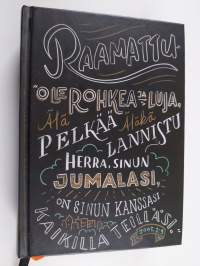 RAAMATTU
"OLE ROHKEA JA LUJA.
Älä PELKÄÄ Äläkä LANNISTU
HERRA, SINUN
JUMALASI,
ON SINUN KANSSASI
KAIKILLA TEILLÄSI."